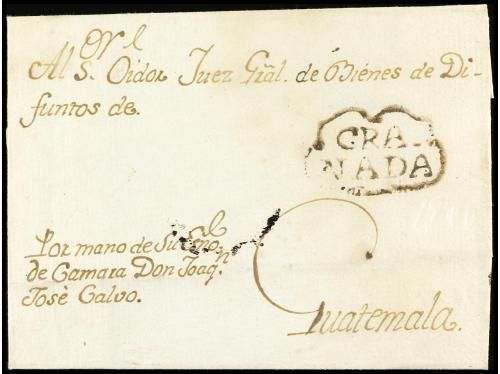 Al S.ᵒʳ Oidor Juez Gr̃al. de Bienes de Di-
funtos de.
GRA-
NADA
Por mano de Su Esno
de Camara Don Joaqⁿ
José Calvo.
Guatemala.